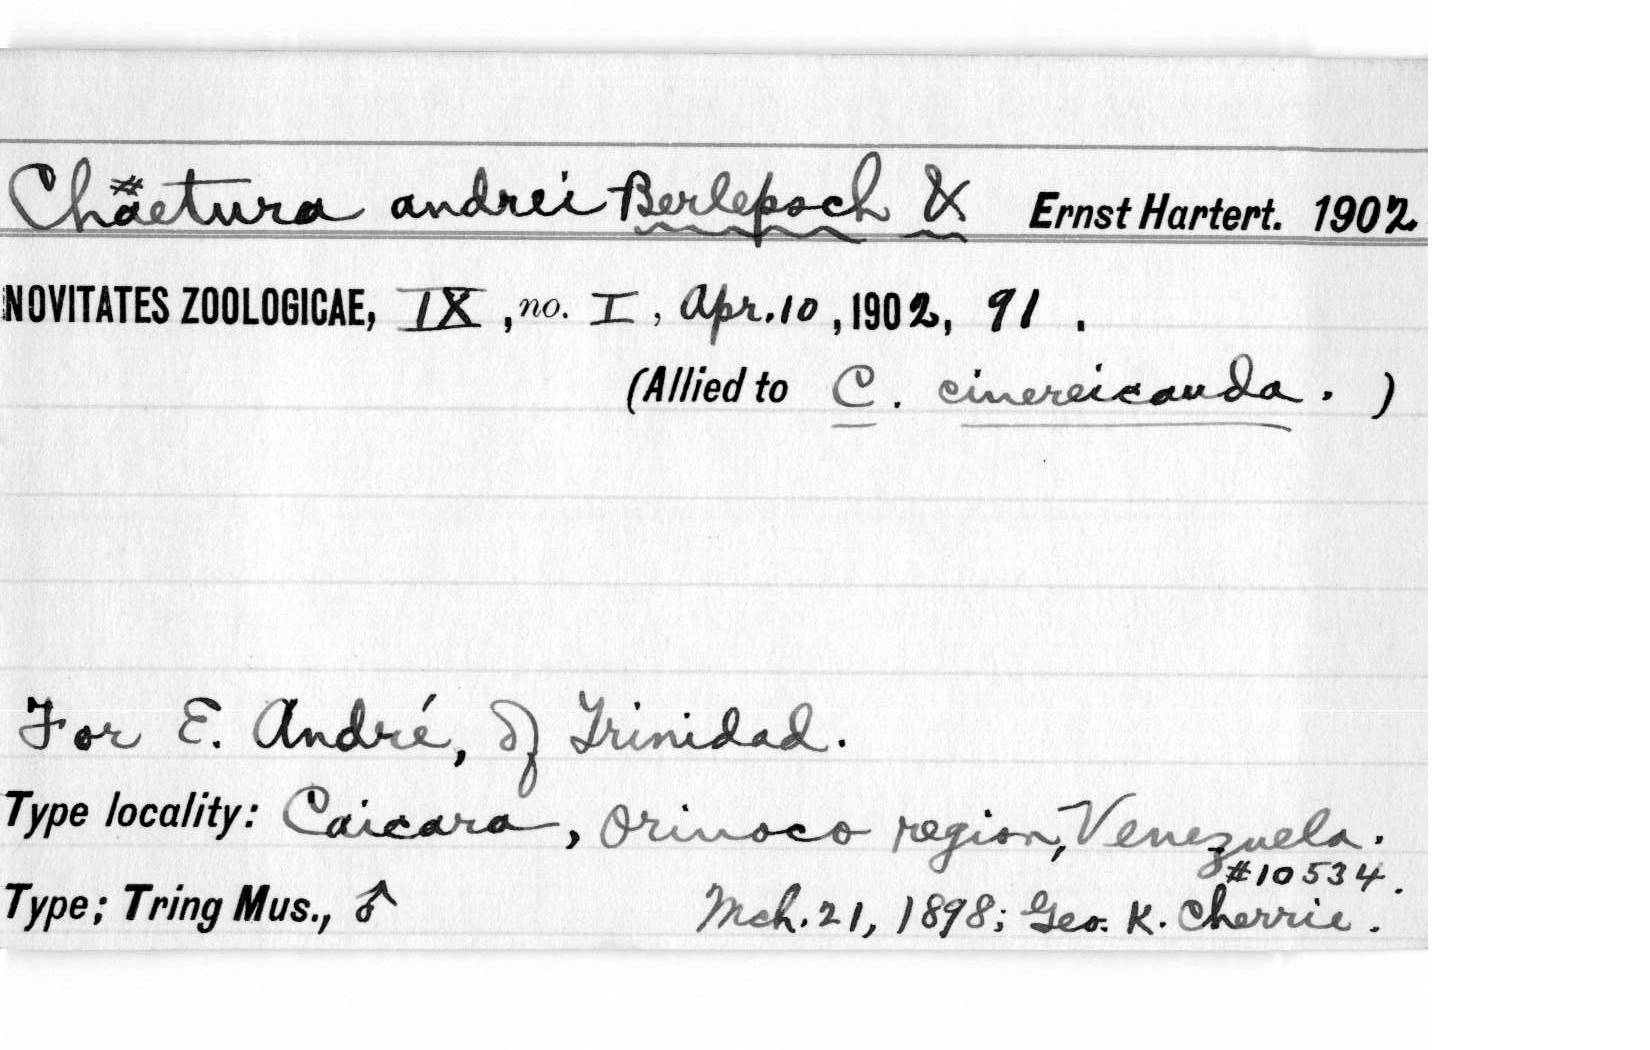 Chaetura andrei Berlepsch & Ernst Hartert. 1902
NOVITATES ZOOLOGICAE, IX, no. I, Apr. 10, 1902, 91.
(Allied to C. cinereicauda.)
For E. André, of Trinidad.
Type locality: Caicara, Orinoco region, Venezuela.
#10534.
Type; Tring Mus., ♂ Mch. 21, 1898; Geo. K. Cherrie.